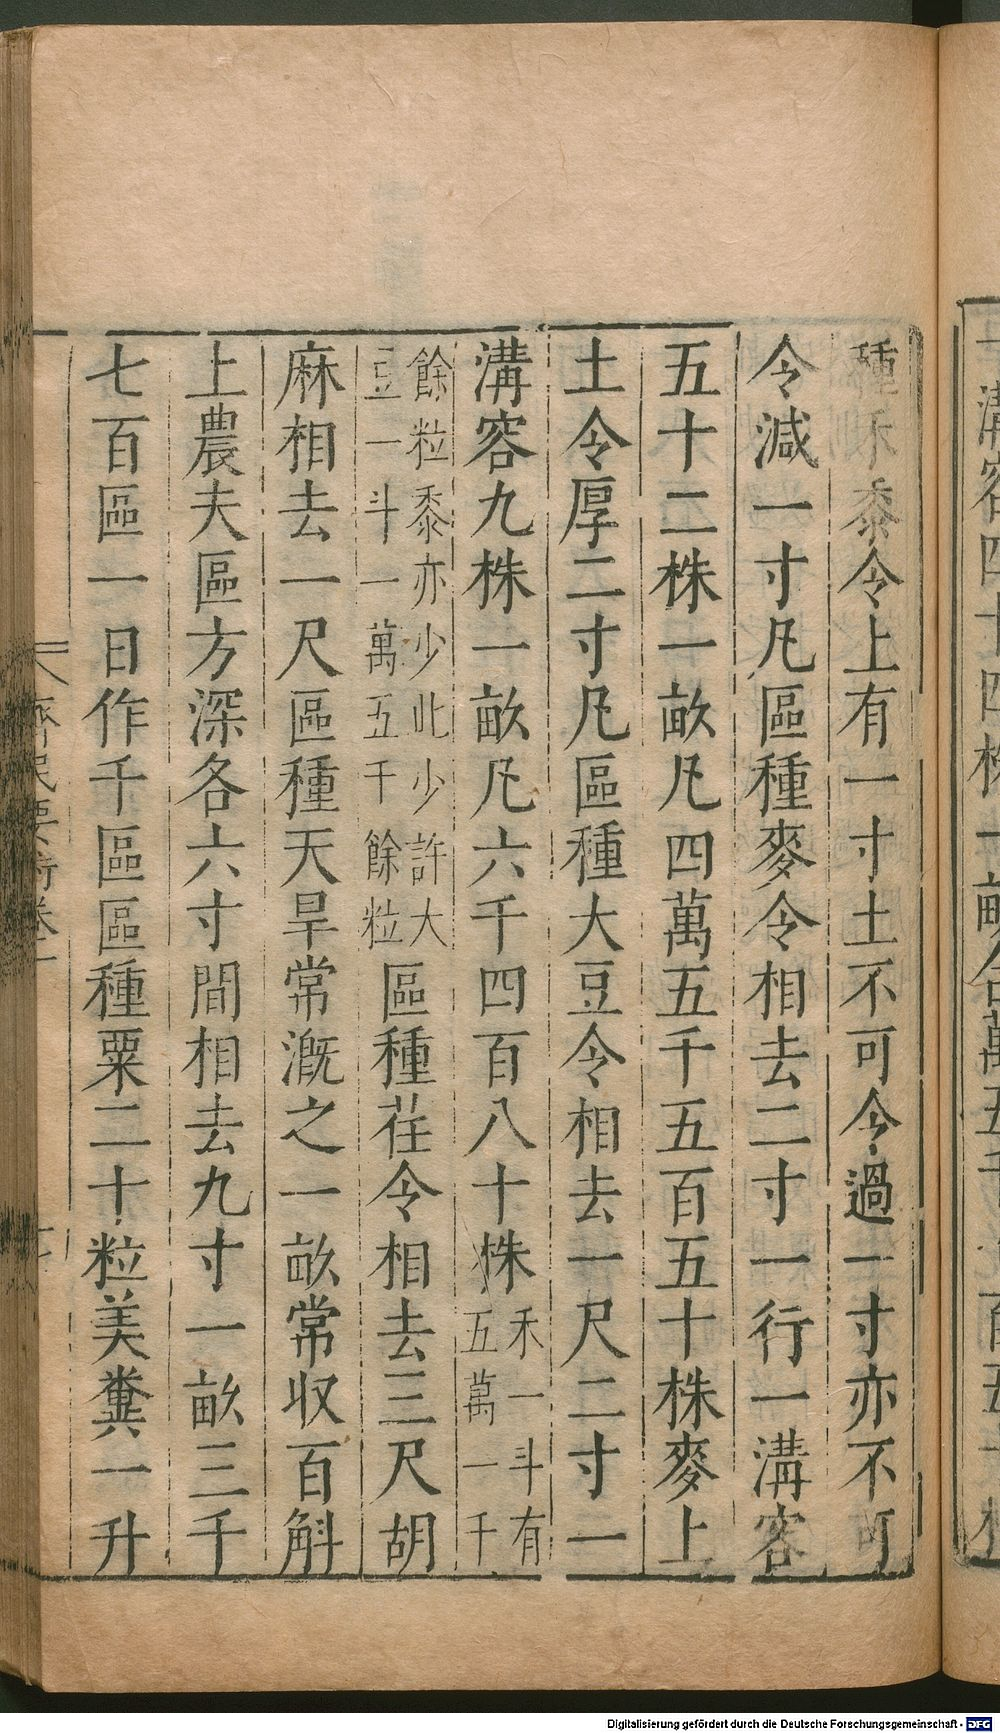 種禾黍令上有一寸土不可令過一寸亦不可
令減一寸凡區種麥令相去二寸一行一溝容
五十二株一畝凡四萬五千五百五十株麥上
土令厚二寸凡區種大豆令相去一尺二寸一
溝容九株一畝凡六千四百八十株
禾一斗有
五萬一千
餘粒黍亦少此少許大
豆一斗一萬五千餘粒
區種荏令相去三尺胡
麻相去一尺區種天旱常漑之一畝常收百斛
上農夫區方深各六寸間相去九寸一畝三千
七百區一日作千區區種粟二十粒美糞一升
齊民要術卷一
Digitalisierung gefördert durch die Deutsche Forschungsgemeinschaft - DFG